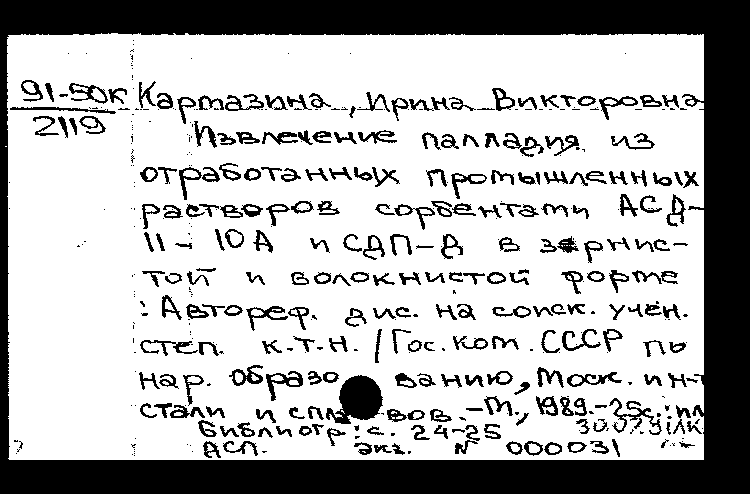 91-50К Картазина, Ирина Викторовна
2119
Извлечение палладия из
отработанных промышленных
растворов сорбентами АСД-
11-10А и СДП-Д в зернис-
той и волокнистой форме
: Автореф. дис. на соиск. учен.
степ. к.т.н. / Гос. ком. СССР по
нар. образованию, Моск. ин-т
стали и сплавов. - М., 1989.-25с.: ил
Библиогр: с. 24-25
АСП. экз. N 000031